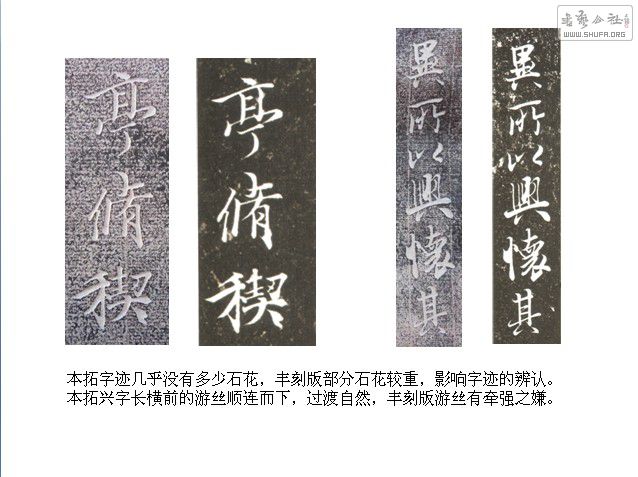 書藝公社
WWW.SHUFA.ORG
亭脩稧
亭脩稧
異所以興懷其
異所以興懷其
本拓字迹几乎没有多少石花，丰刻版部分石花较重，影响字迹的辨认。
本拓兴字长横前的游丝顺连而下，过渡自然，丰刻版游丝有牵强之嫌。